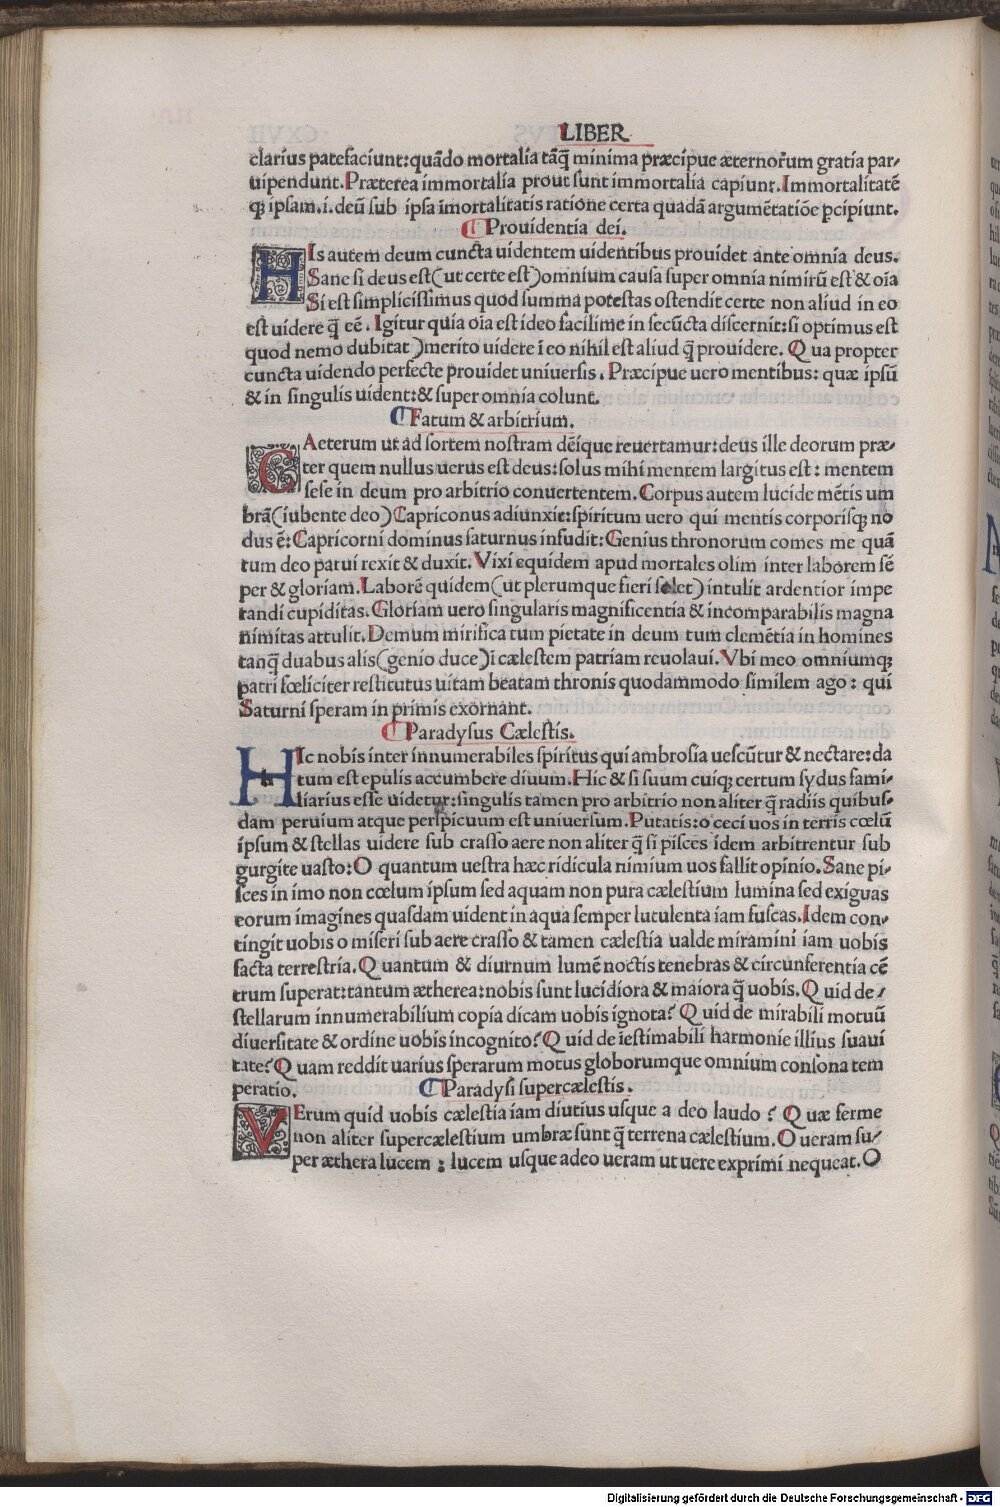 LIBER
clarius patefaciunt: quãdo mortalia tãq̃ minima præcipue æternorum gratia par-
uipendunt. Præterea immortalia prout sunt immortalia capiunt. Immortalitatẽ
q; ipsam .i. deũ sub ipsa ĩmortalitatis ratione certa quadã argumẽtatiõe ꝑcipiunt.
Prouidentia dei.
HIs autem deum cuncta uidentem uidentibus prouidet ante omnia deus.
Sane si deus est (ut certe est) omnium causa super omnia nimirũ est & oĩa
Si est simplicissimus quod summa potestas ostendit certe non aliud in eo
est uidere q̃ eẽ. Igitur quia oĩa est ideo facilime in se cũcta discernit: si optimus est
quod nemo dubitat) merito uidere ĩ eo nihil est aliud q̃ prouidere. Qua propter
cuncta uidendo perfecte prouidet uniuersis. Præcipue uero mentibus: quæ ipsũ
& in singulis uident: & super omnia colunt.
Fatum & arbitrium.
CAeterum ut ad sortem nostram dẽique reuertamur: deus ille deorum præ-
ter quem nullus uerus est deus: solus mihi mentem largitus est: mentem
sese in deum pro arbitrio conuertentem. Corpus autem lucide mẽtis um
brã (iubente deo) Capriconus adiunxit: spiritum uero qui mentis corporisq; no
dus ẽ: Capricorni dominus saturnus infudit: Genius thronorum comes me quã
tum deo patui rexit & duxit. Vixi equidem apud mortales olim inter laborem sẽ
per & gloriam. Laborẽ quidem (ut plerumque fieri solet) intulit ardentior impe
randi cupiditas. Gloriam uero singularis magnificentia & incomparabilis magna
nimitas attulit. Demum mirifica tum pietate in deum tum clemẽtia in homines
tanq̃ duabus alis (genio duce) ĩ cælestem patriam reuolaui. Vbi meo omniumq;
patri fœliciter restitutus uitam beatam thronis quodammodo similem ago: qui
Saturni speram in primis exornant.
Paradysus Cælestis.
HIc nobis inter innumerabiles spiritus qui ambrosia uescũtur & nectare: da
tum est epulis accumbere diuum. Hic & si suum cuiq; certum sydus fami-
liarius esse uidetur: singulis tamen pro arbitrio non aliter q̃ radiis quibus-
dam peruium atque perspicuum est uniuersum. Putatis: o ceci uos in terris cœlũ
ipsum & stellas uidere sub crasso aere non aliter q̃ si pisces idem arbitrentur sub
gurgite uasto: O quantum uestra hæc ridicula nimium uos fallit opinio. Sane pi-
sces in imo non cœlum ipsum sed aquam non pura cælestium lumina sed exiguas
eorum imagines quasdam uident in aqua semper lutulenta iam fuscas. Idem con-
tingit uobis o miseri sub aere crasso & tamen cælestia ualde miramini iam uobis
facta terrestria. Quantum & diurnum lumẽ noctis tenebras & circunferentia cẽ
trum superat: tantum ætherea: nobis sunt lucidiora & maiora q̃ uobis. Quid de-
stellarum innumerabilium copia dicam uobis ignota? Quid de mirabili motuũ
diuersitate & ordine uobis incognito? Quid de ĩestimabili harmonie illius suaui
tate? Quam reddit uarius sperarum motus globorumque omnium consona tem
peratio.
Paradysi supercælestis.
VErum quid uobis cælestia iam diutius usque a deo laudo? Quæ ferme
non aliter supercælestium umbræ sunt q̃ terrena cælestium. O ueram su-
per æthera lucem: lucem usque adeo ueram ut uere exprimi nequeat. O
Digitalisierung gefördert durch die Deutsche Forschungsgemeinschaft - DFG